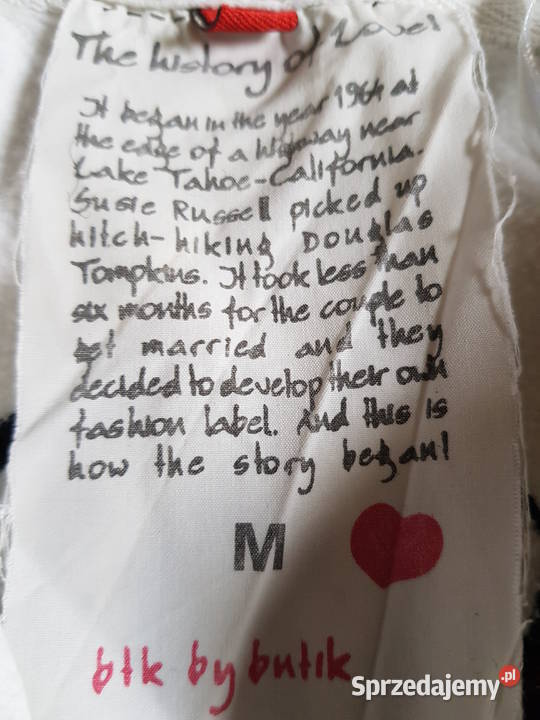 The history of Love!
It began in the year 1964 at
the edge of a highway near
Lake Tahoe-California.
Susie Russell picked up
hitch-hiking Douglas
Tompkins. It took less than
six months for the couple to
get married and they
decided to develop their own
fashion label. And this is
how the story began!
M
btk by butik
Sprzedajemy.pl